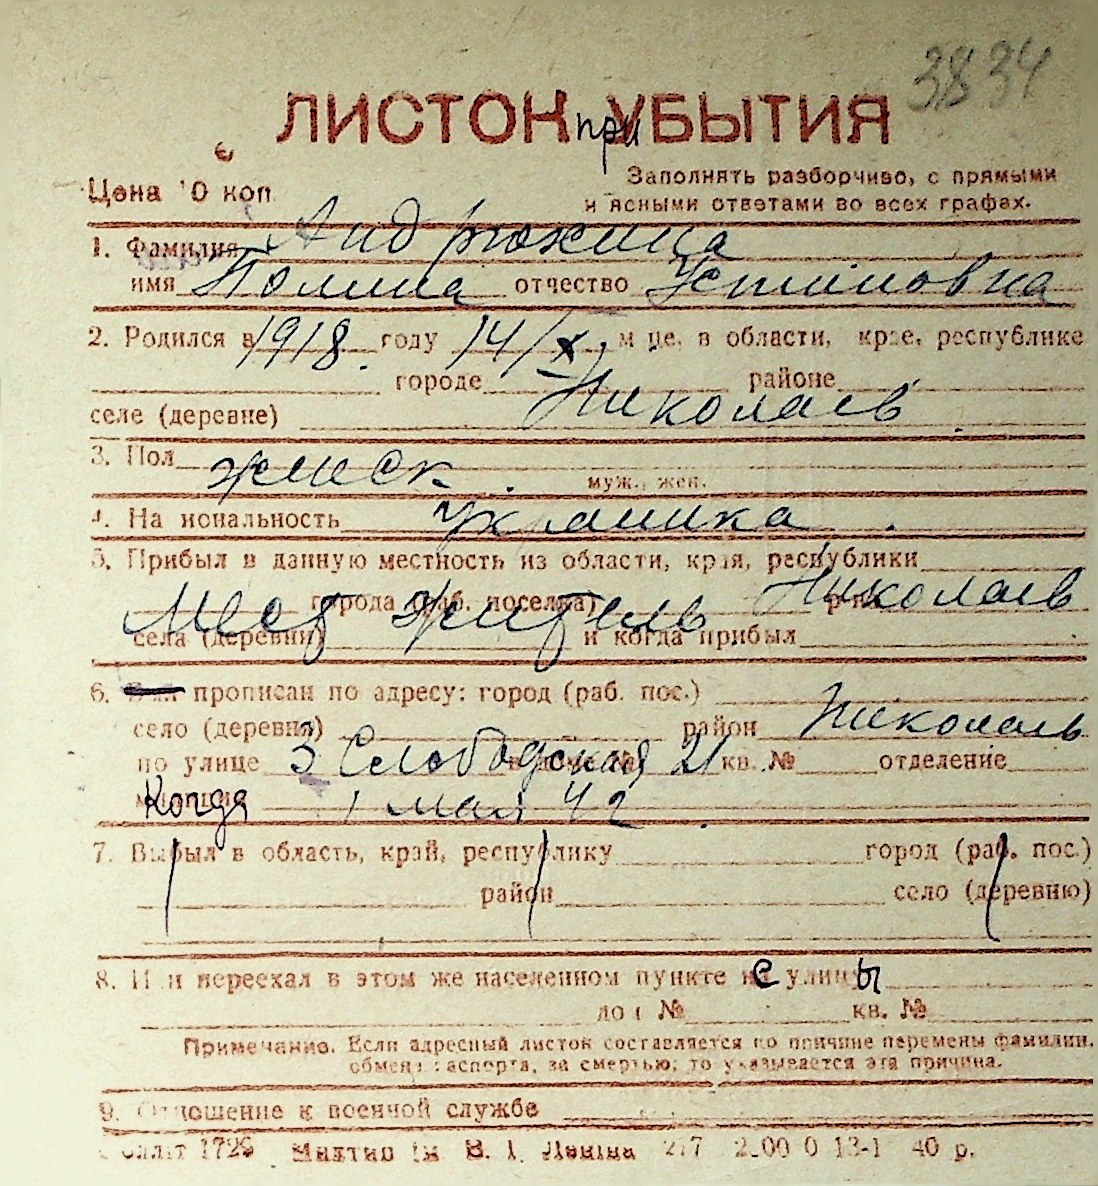 3834
ЛИСТОК при УБЫТИЯ
Цена 10 коп
Заполнять разборчиво, с прямыми
и ясными ответами во всех графах.
1. Фамилия
имя Полина отчество Устиновна
2. Родился в 1918 году 14/X м-це, в области, крае, республике
городе районе
селе (деревне) Николаев
3. Пол женск. муж., жен.
4. Национальность украинка.
5. Прибыл в данную местность из области, края, республики
города (раб. поселка) Николаев
Мест житель
села (деревни) и когда прибыл
6. прописан по адресу: город (раб. пос.)
село (деревня) район Николаев
по улице 3 Слободская 21 кв. № отделение
Когда 1 мая 42.
7. Выбыл в область, край, республику город (раб. пос.)
район село (деревню)
8. Или переехал в этом же населенном пункте с улицы
дом № кв. №
Примечание. Если адресный листок составляется по причине перемены фамилии,
обмена паспорта, за смертью, то указывается эта причина.
9. Отношение к военной службе
1729 В. І. Леніна 13-1 40 р.